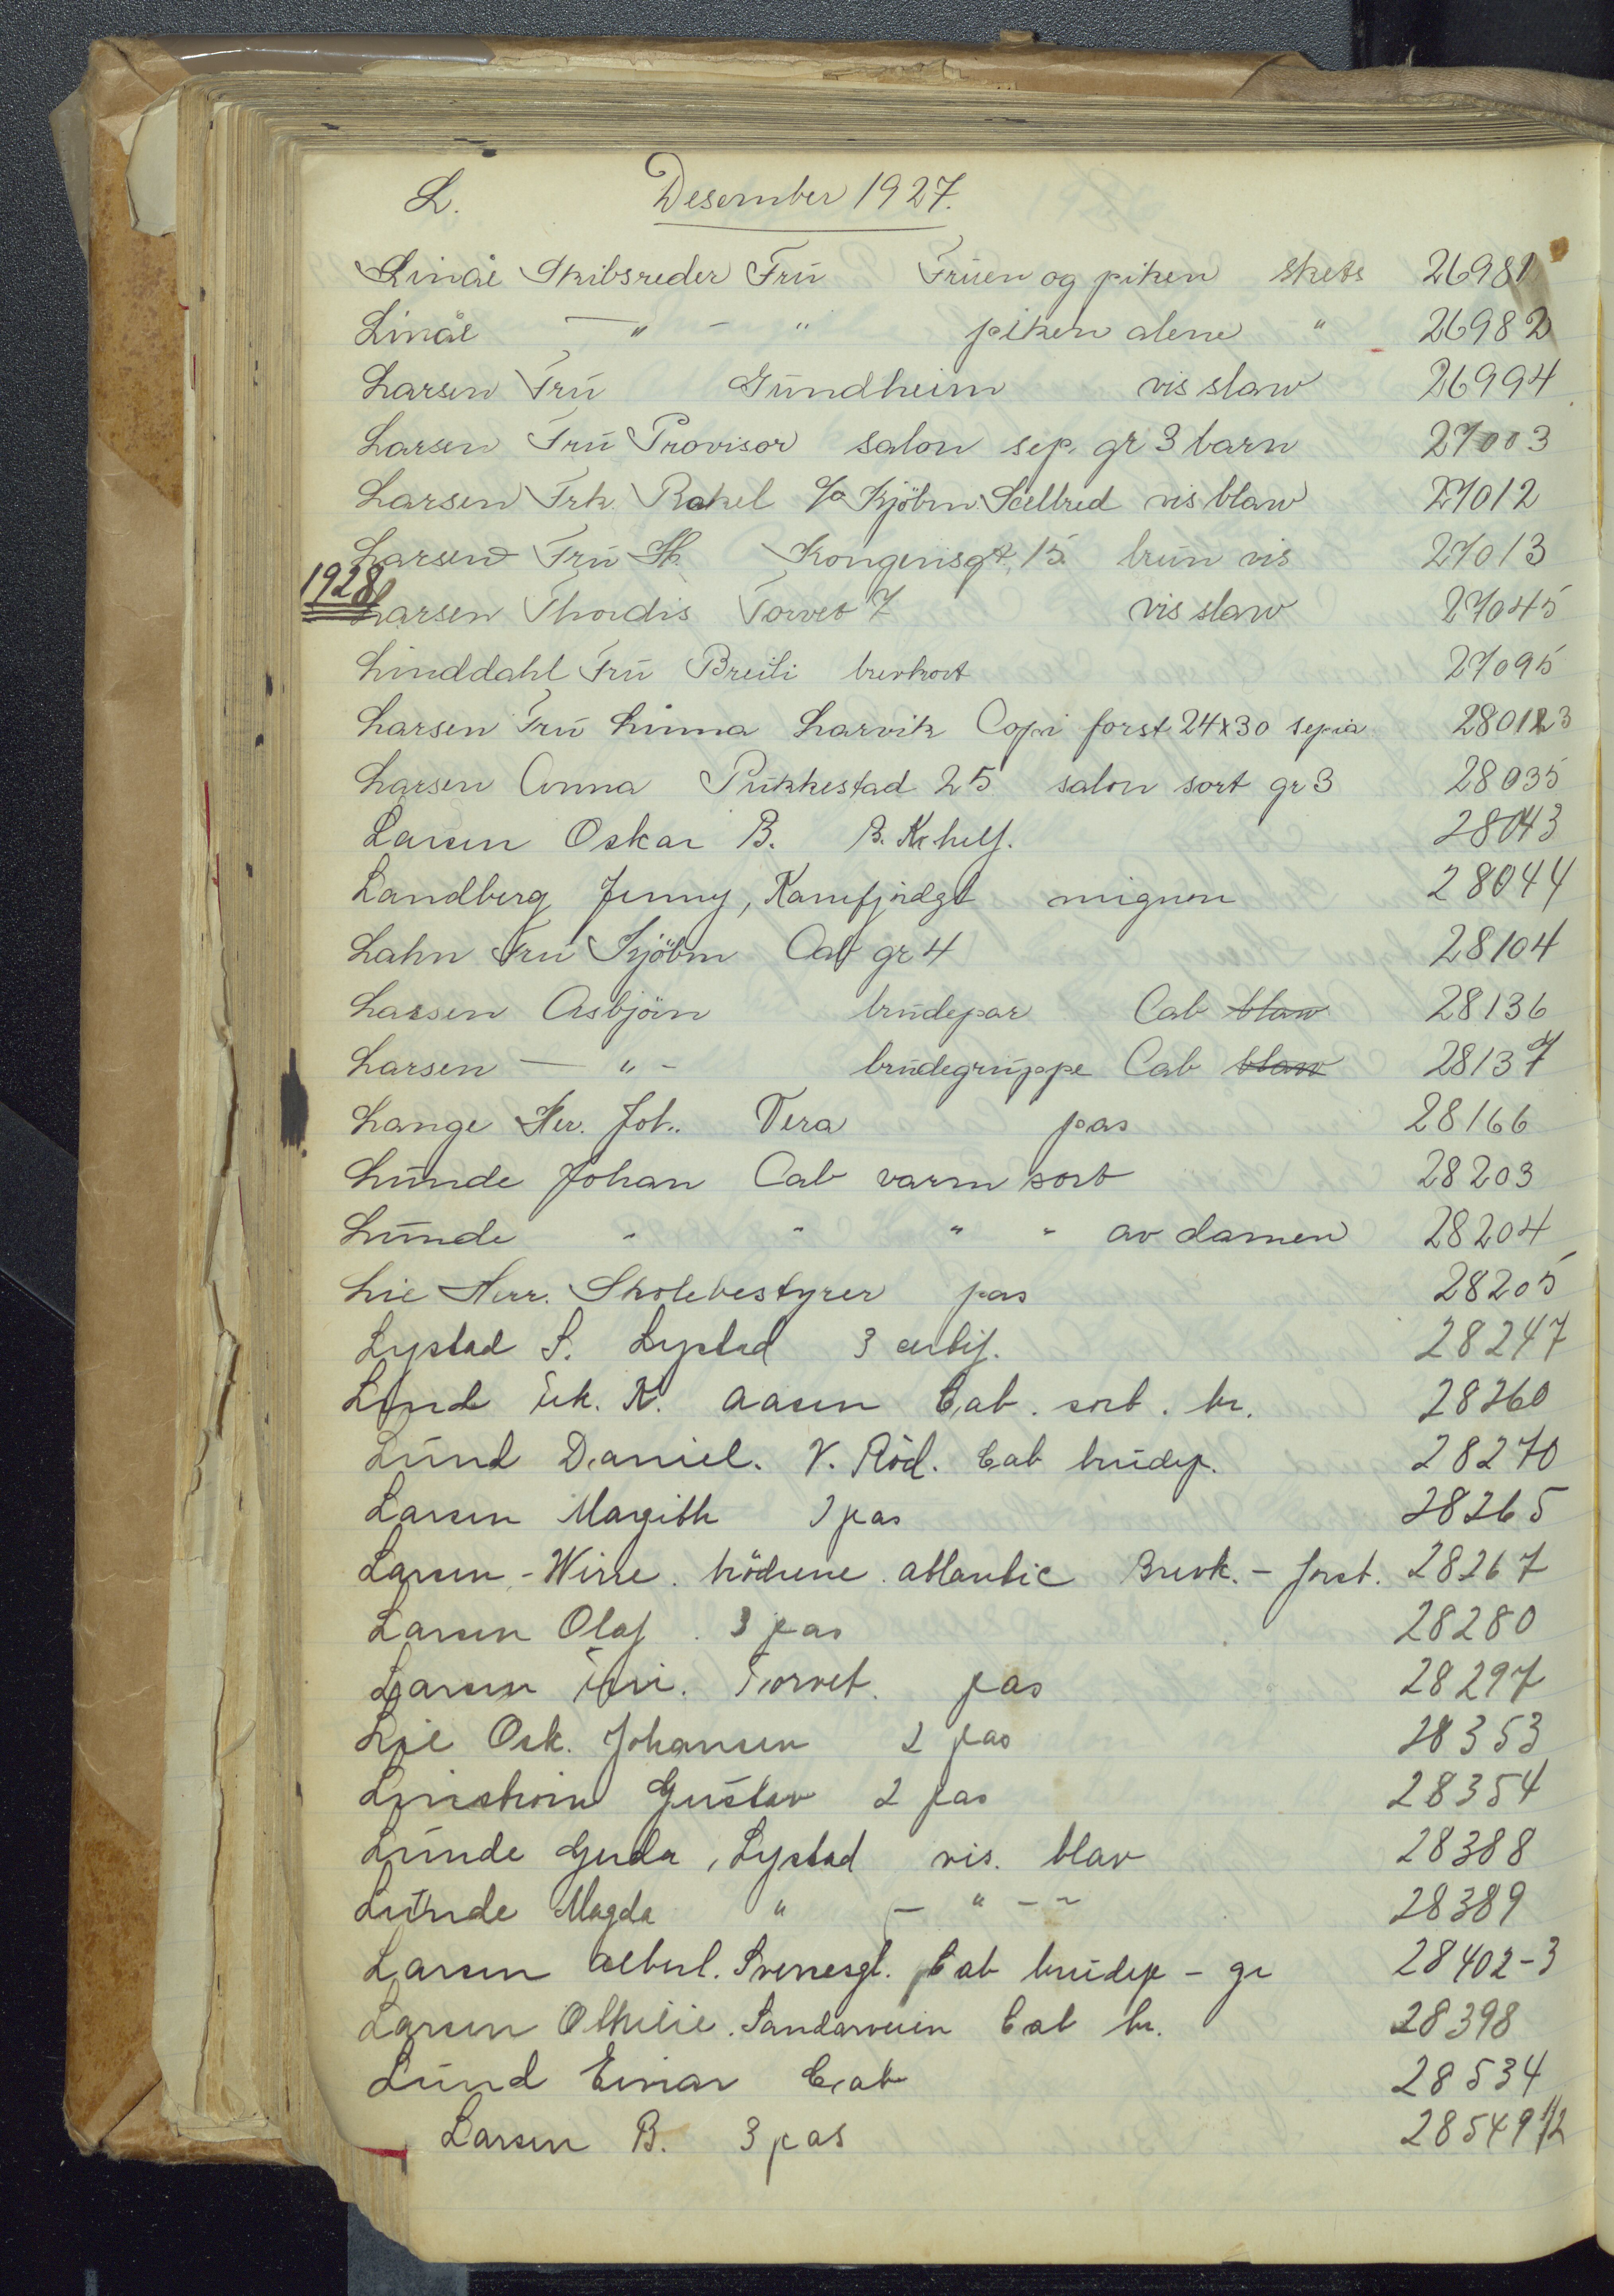 L. Desember 1927.
Linåe Skibsreder Frū Frūen og piken skets 26981
Linåe — " - " piken alene " 26982
Larsen Frū Gūndheim vis slaw 26994
Larsen Frū Provisor salon sep. gr 3 barn 27003
Larsen Frk. Rakel c/o Kjöbm. vis blaw 27012
Larsen Frū Th. Kongensgt, 15. brūn vis 27013
1928
Larsen Thordis Torvet 7 vis slaw 27045
Linddahl Frū Breili brevkort 27095
Larsen Frū Linna Larvik Copi forst 24x30 sepia 280123
Larsen Anna Pūkkestad 25 salon sort gr 3 28035
Larsen Oskar B. B. K. helf. 28043
Landberg Jenny, Kamfjordgt mignon 28044
Lahn Frū Kjöbm Cab gr 4 28104
Larsen Asbjörn brūdepar Cab blaw 28136
Larsen — " - brūdegrūppe Cab blaw 28137
Lange Her. Joh. Vera pas 28166
Lūnde Johan Cab varm sort 28203
Lūnde " " " " av damen 28204
Lie Herr. Skolebestyrer pas 28205
Lystad S. Lystad 3 28247
Lind Frk. K. Aasen Cab. sort. br. 28260
Lūnd Daniel. V. Röd. Cab brūdep. 28270
Larsen Margith 2 pas 28265
Larsen - Wirre. brödrene. Atlantic Brevk. - forst. 28267
Larsen Olaf. 3 pas 28280
Larsen Frū. Torvet. pas 28297
Lie Osk. Johansen 2 pas 28353
Gūstav 2 pas 28354
Lūnde Gerda, Lystad vis. blav 28388
Lūnde Magda " — " - ~ 28389
Larsen Albert. Sverresgt. Cab brūdep - gr 28402-3
Larsen Othilie. Sandarveien Cab br. 28398
Lūnd Einar Cab 28534
Larsen B. 3 pas 28549 1/2